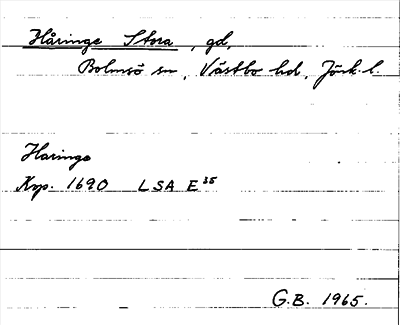 Håringe Stora, gd,
Bolmsö sn, Västbo hd, Jönk. l.
Haringe
Krp. 1690 LSA E 35
G.B. 1965.